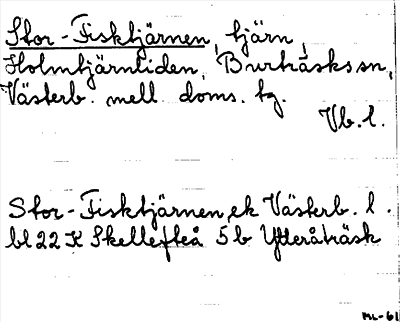 Stor-Fisktjärnen, tjärn,
Holmtjärnliden, Burträsks sn,
Västerb. mell. doms. tg.
Vb. l.
Stor-Fisktjärnen, ek Västerb. l.
bl 22 K Skellefteå 5b Ytteråträsk
ML-61